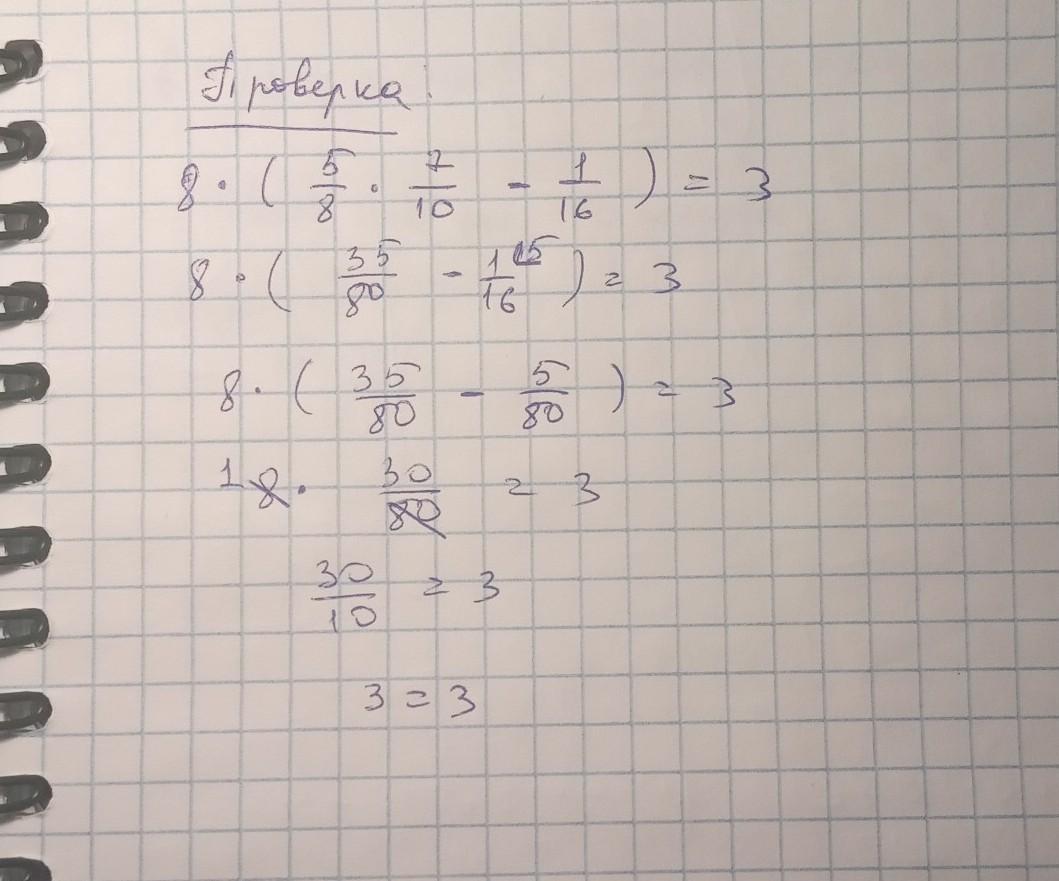 Проверка:
8 · ( 5/8 · 7/10 - 1/16 ) = 3
8 · ( 35/80 - 1/16 ⌊5 ) = 3
8 · ( 35/80 - 5/80 ) = 3
1 8 · 30/80 = 3
30/10 = 3
3 = 3